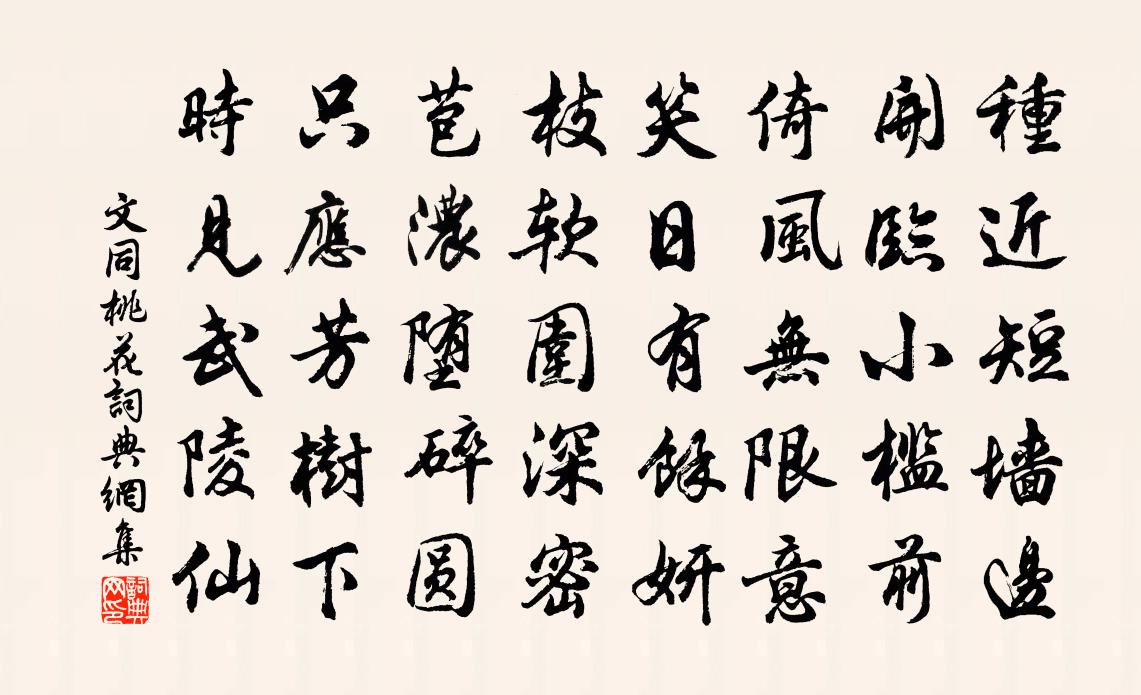 種近短墙邊
開臨小檻前
倚風無限意
笑日有餘妍
枝軟圍深密
苞濃堕碎圆
只應芳樹下
時見武陵仙
文同桃花詞典網集
詞典网印